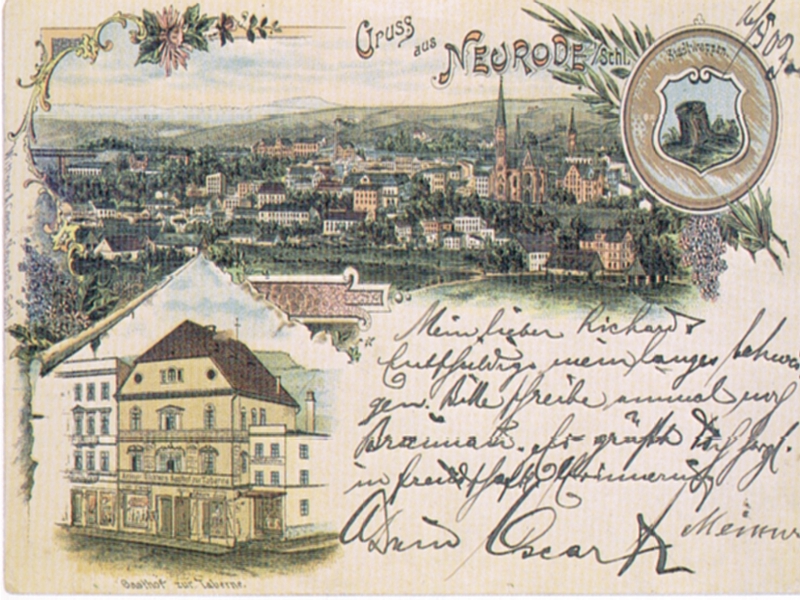 Gruss
aus
NEURODE i/Schl.
Stadtwappen
Mein lieber Richard
Entschuldige mein langes Schwei
gen. Bitte schreibe einmal nach
Braunau. Es grüßt Dich herzl.
in freundschaftl. Erinnerung
Dein Oscar
Gasthof zur Taberne
Gasthof zur Taberne.